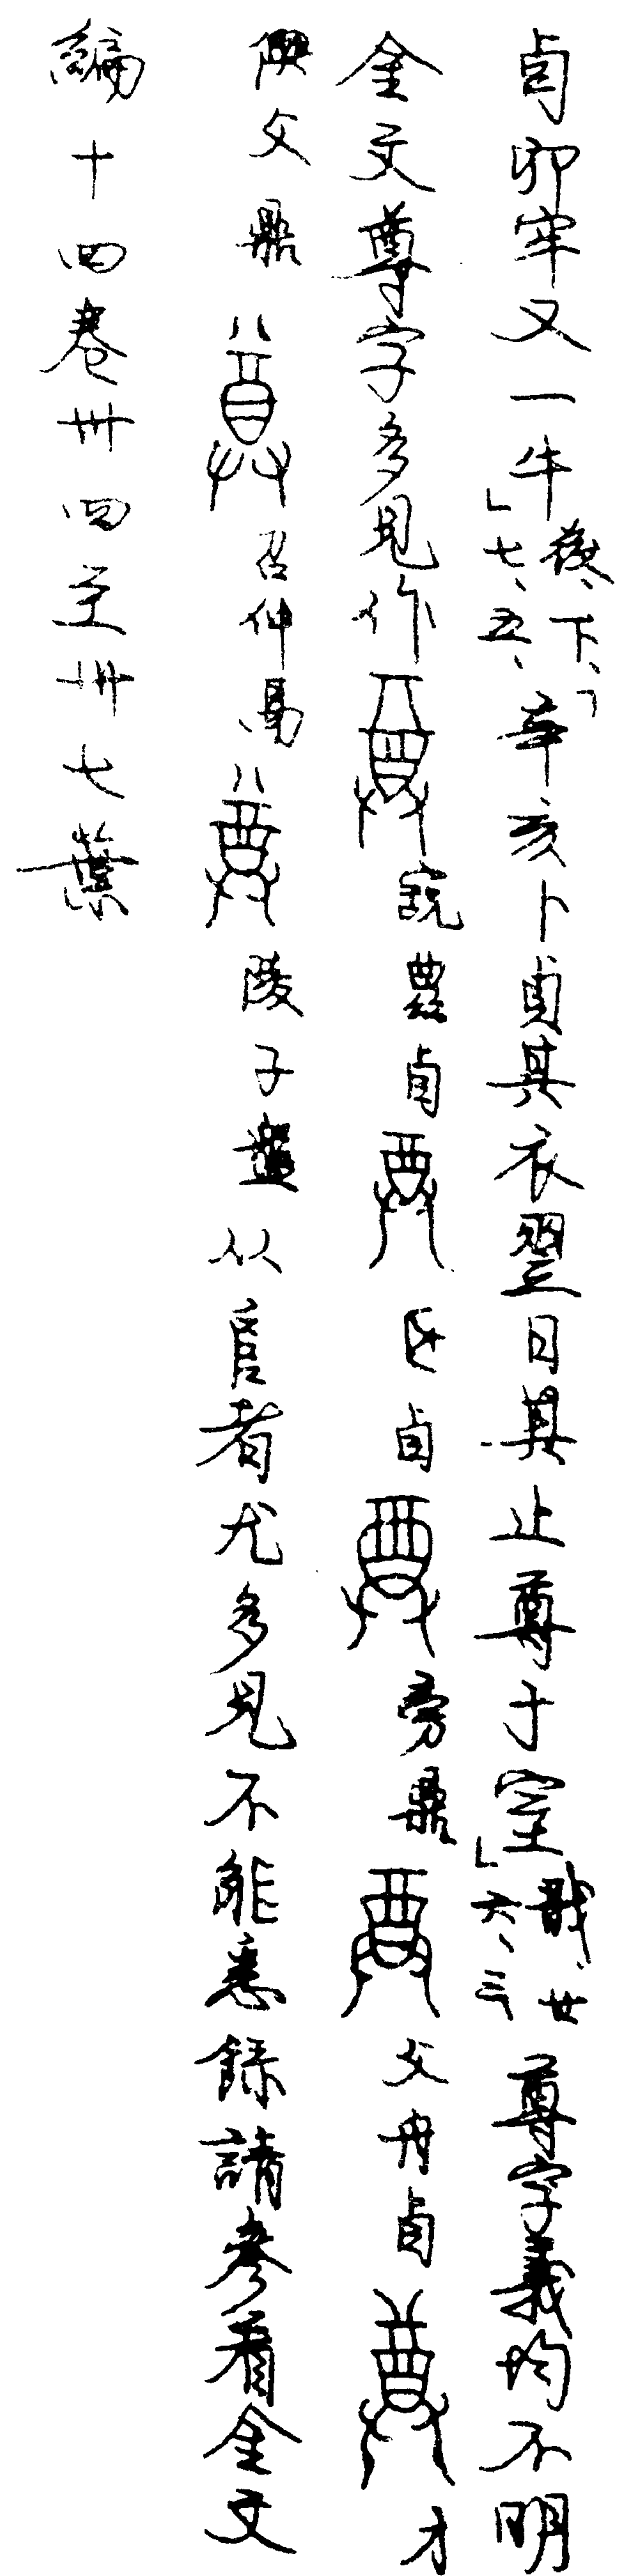 卣卯牢又一牛」後、下、七、五、「辛亥卜貞其衣翌日其止尊于室」戩、廿六、三尊字義均不明
金文尊字多見作農卣卣旁鼎父舟卣才
父鼎召仲鬲陵子盤从𨸏者尤多見不能悉錄請參看金文
編十四卷卅四至卅七葉